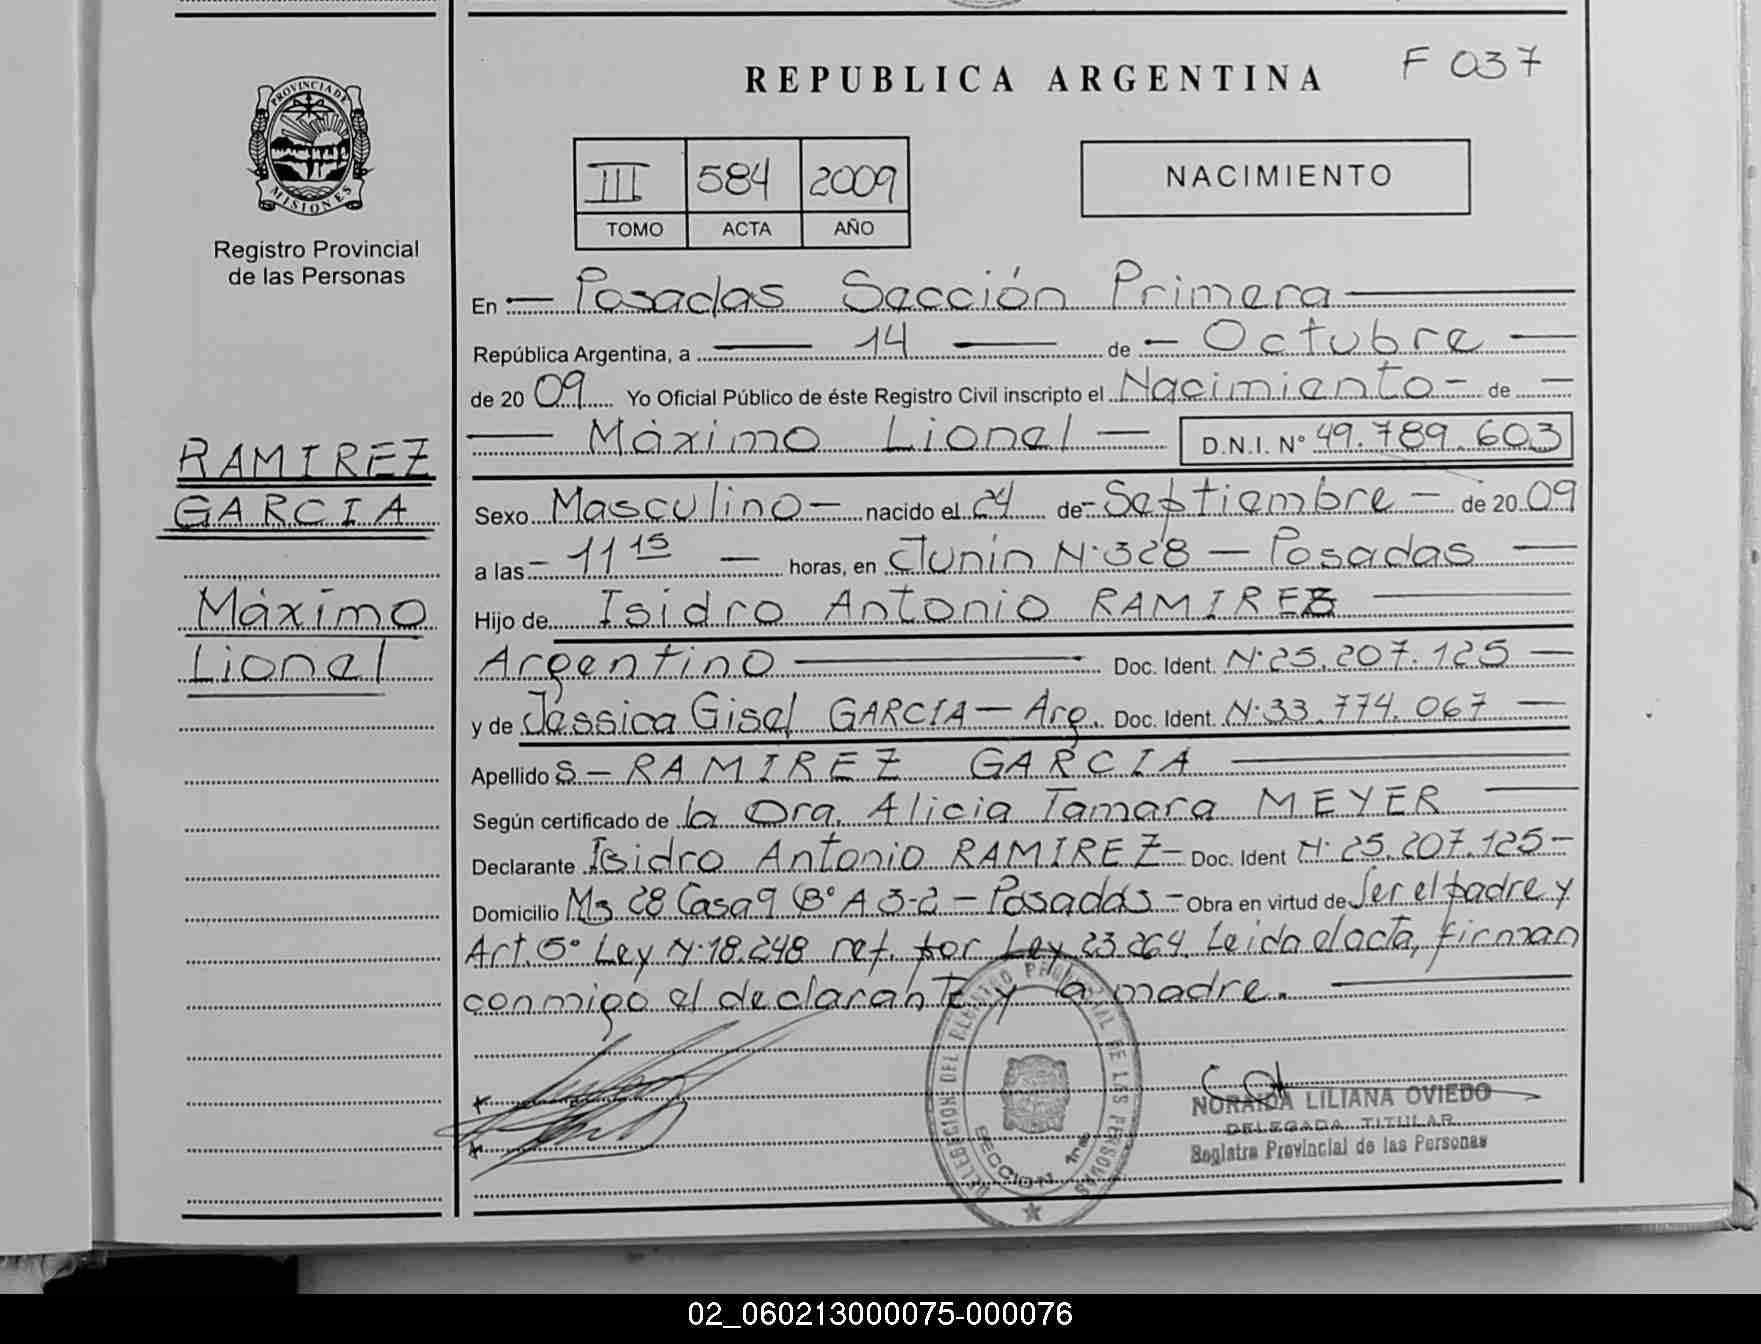 F 037
REPUBLICA ARGENTINA
PROVINCIA DE MISIONES
Registro Provincial
de las Personas
III 584 2009
TOMO ACTA AÑO
NACIMIENTO
En — Posadas Sección Primera —
República Argentina, a — 14 — de — Octubre —
de 20 09 Yo Oficial Público de éste Registro Civil inscripto el Nacimiento — de —
— Máximo Lionel — D.N.I. N° 49.789.603
RAMIREZ
GARCIA
Máximo
Lionel
Sexo Masculino — nacido el 24 de — Septiembre — de 20 09
a las — 11 15 — horas, en Junin N° 328 — Posadas —
Hijo de Isidro Antonio RAMIREZ —
Argentino — Doc. Ident. N° 25.207.125 —
y de Jéssica Gisel GARCIA — Arg. Doc. Ident. N° 33.774.067 —
Apellido S — RAMIREZ GARCIA —
Según certificado de la Dra. Alicia Tamara MEYER —
Declarante Isidro Antonio RAMIREZ — Doc. Ident N° 25.207.125 —
Domicilio Mz 28 Casa 9 B° A 3-2 — Posadas — Obra en virtud de Ser el padre y
Art. 5° Ley N° 18.248 ref. por Ley 23.264. Leida el acta, firman
conmigo el declarante y la madre. —
DELEGACION DEL REGISTRO PROVINCIAL DE LAS PERSONAS
SECCION 1ra
NORAIDA LILIANA OVIEDO
DELEGADA TITULAR
Registro Provincial de las Personas
02_060213000075-000076